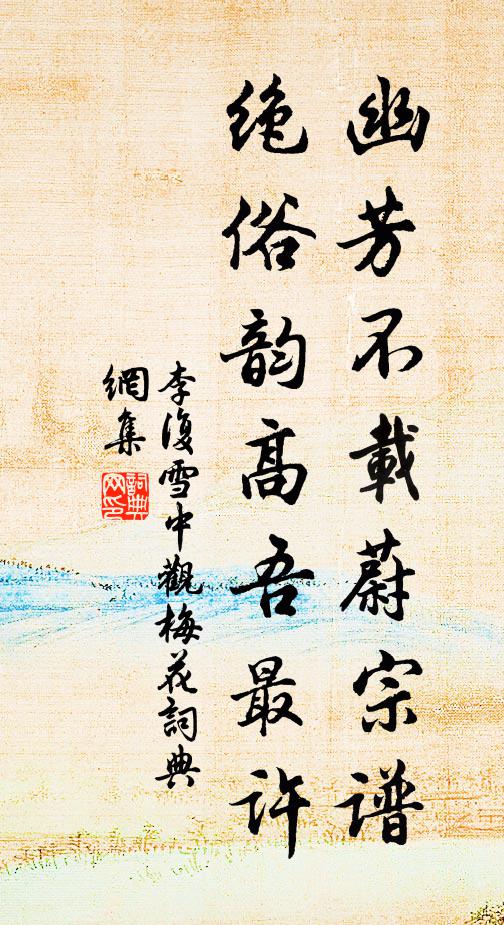 幽芳不載蔚宗谱
绝俗韵高吾最许
李復雪中觀梅花詞典
網集
詞典
网印